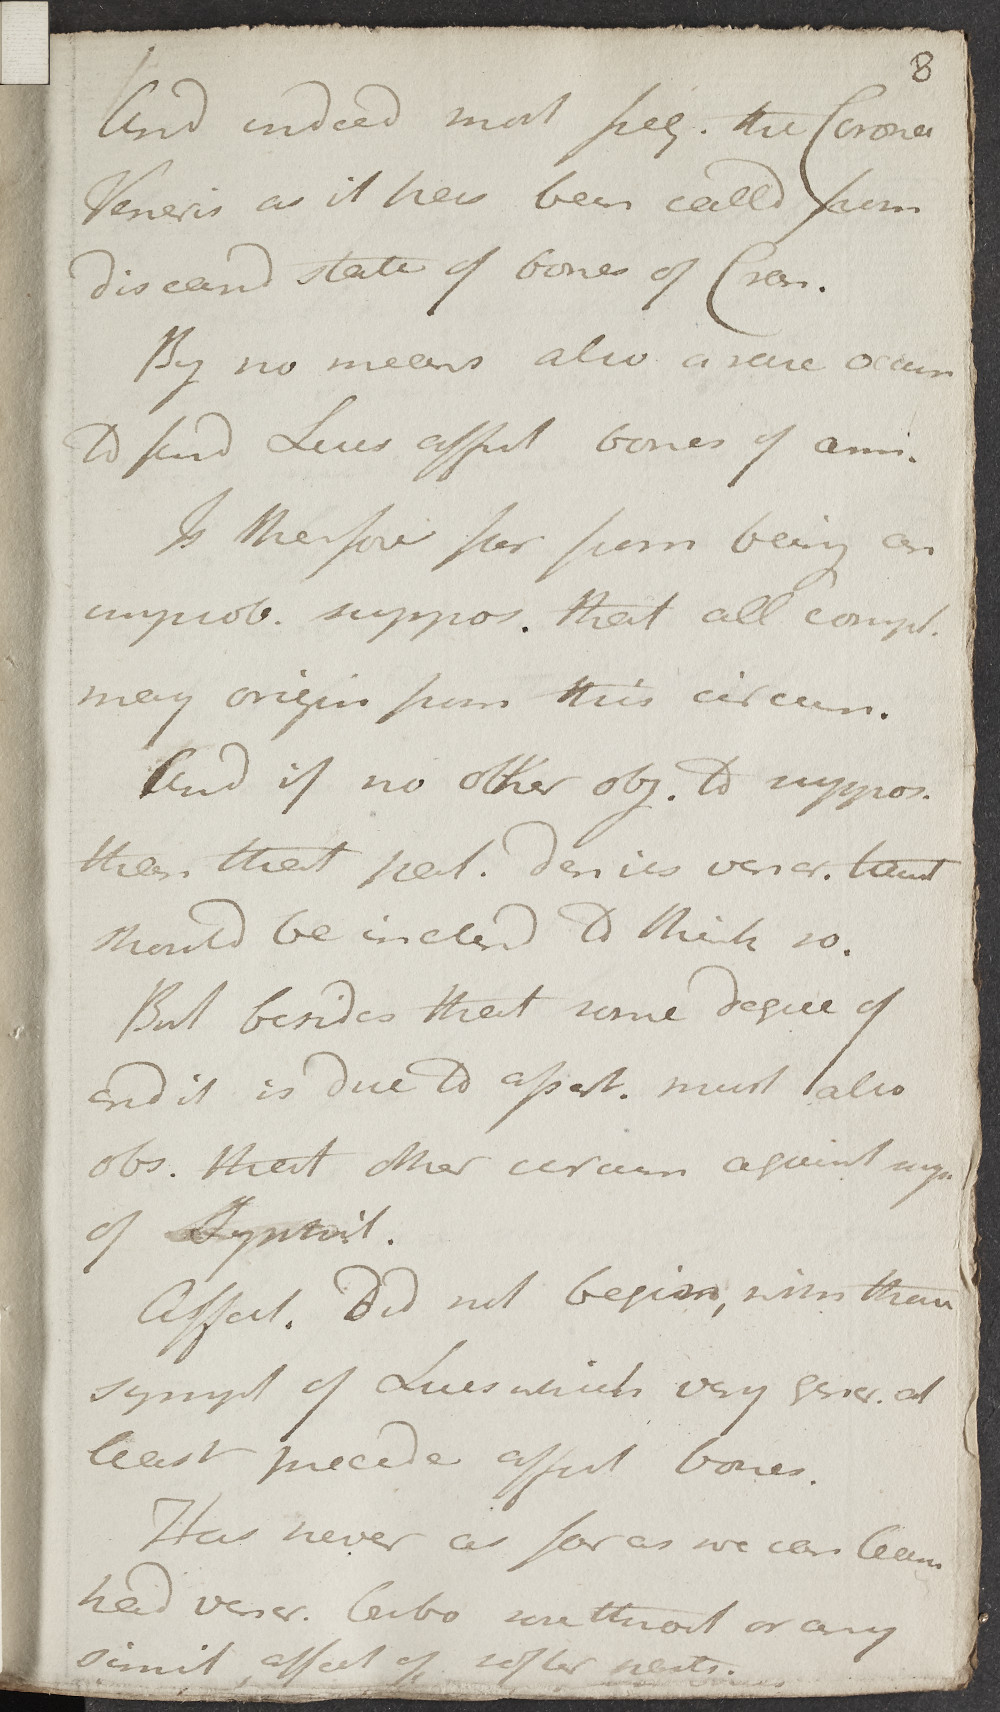 8
And indeed most freq. the Corona
Veneris as it has been calld from
diseasd state of bones of Cran.
By no means also a rare occurr
to find Lues affect bones of arm.
Is therefore far from being an
improb. suppos. that all compl.
may origin from this circum.
And if no other obj. to suppos.
then that pat. denies vener. taint
should be inclend to think so.
But besides that some degree of
credit is due to assert. must also
obs. that other circum against
of
Affect. Did not begin, with those
sympt of Lues which very gener. at
least precede affect bones.
Has never as far as we can learn
had vener. bubo sore throat or any
simil affect of softer parts.